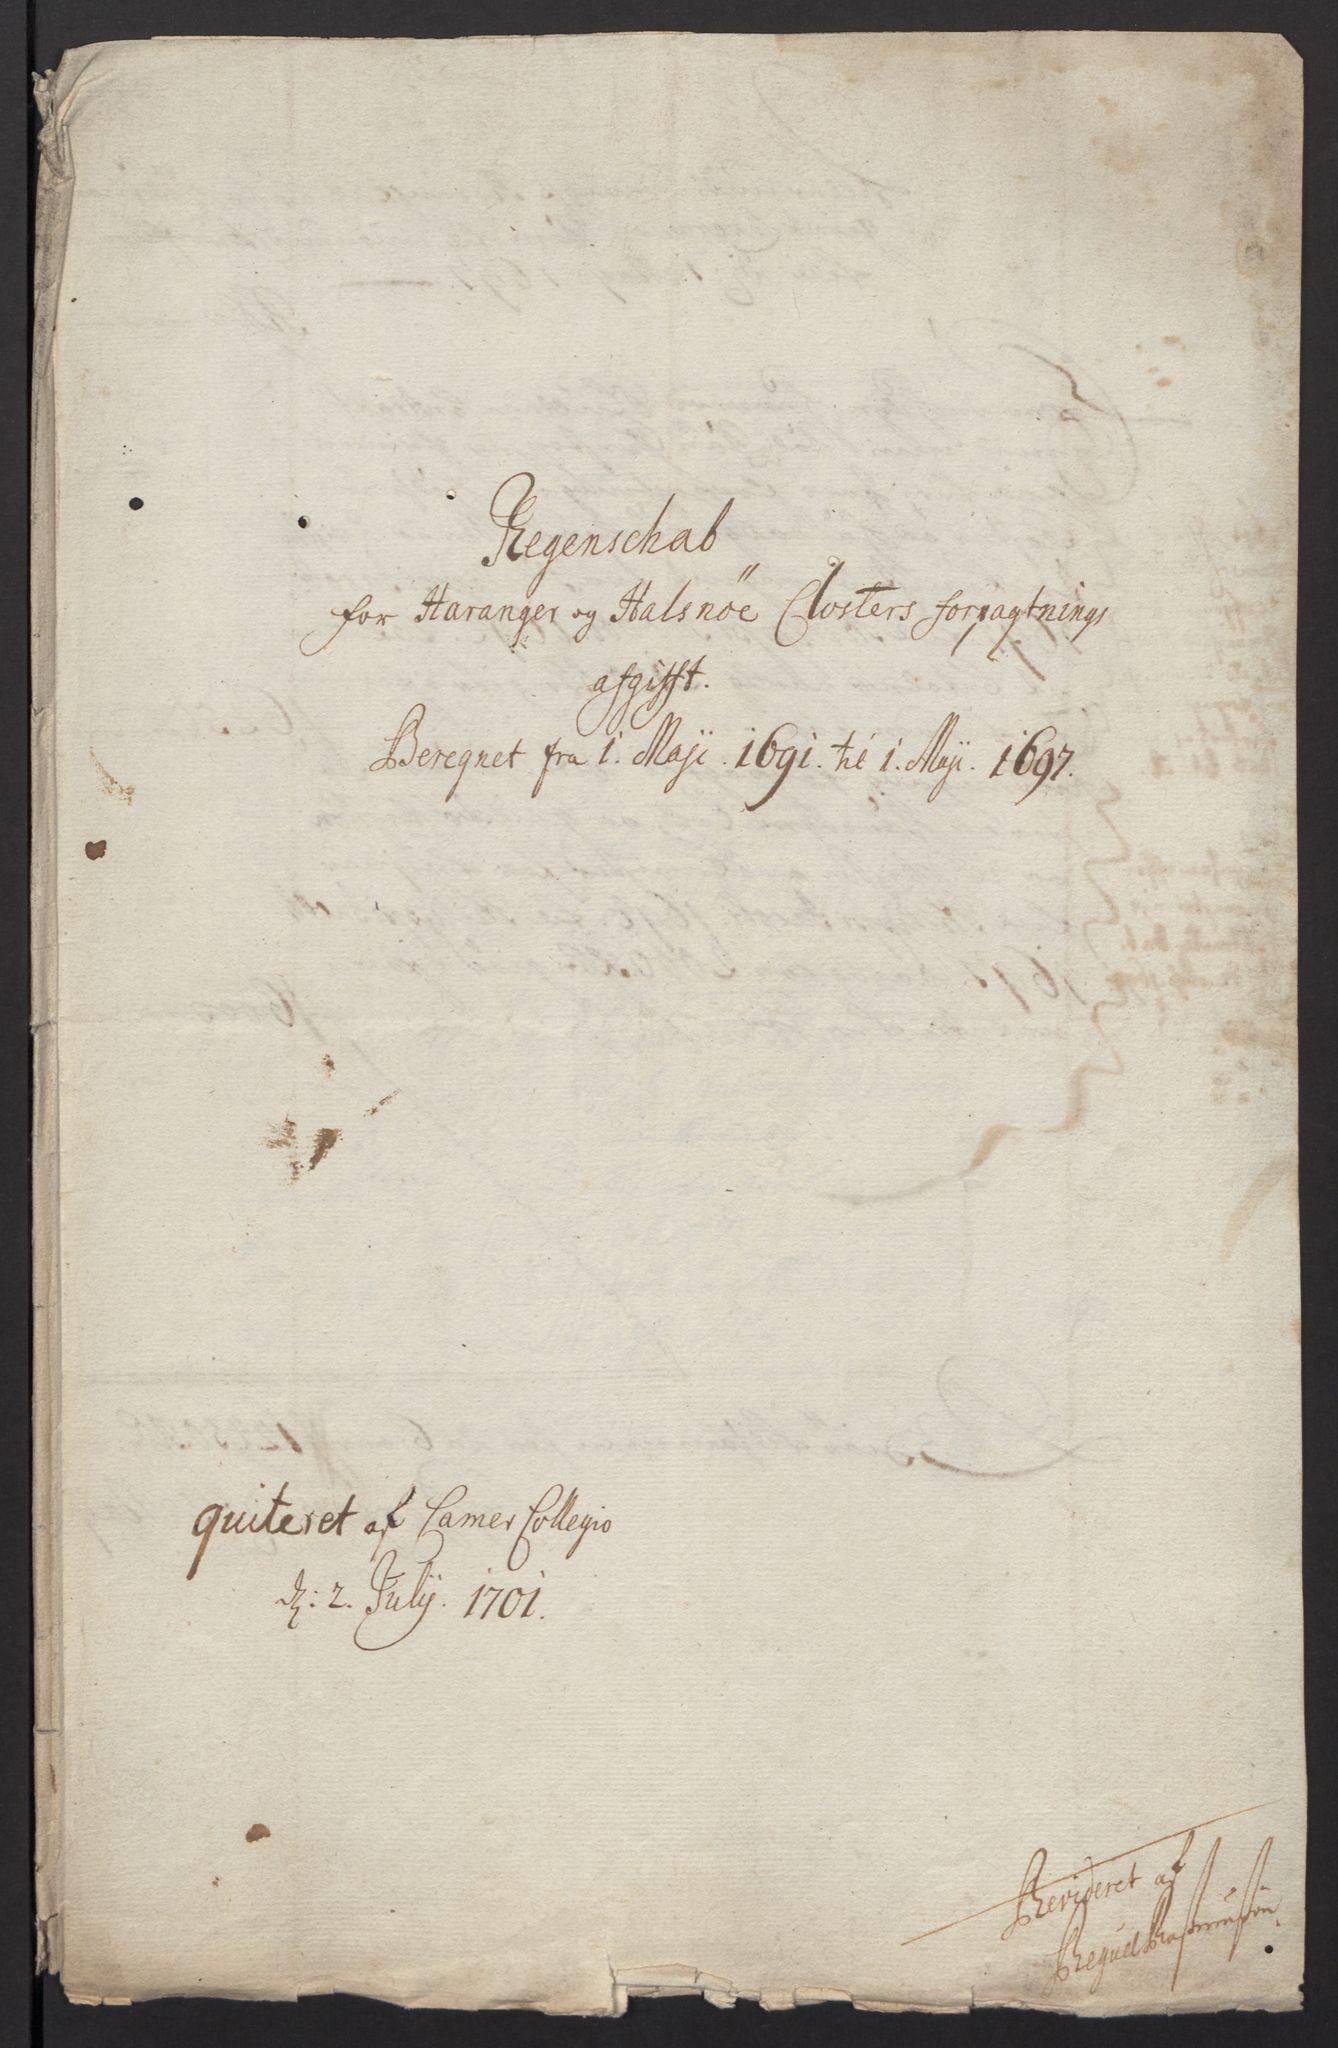 Regenschab
for Haranger og Halsnöe Closters forpagtnings
afgifft.
Beregnet fra 1. Maji. 1691. til 1. Maji. 1697.
quiteret af Camer Collegio
d: 2. Julij. 1701.
Revideret af